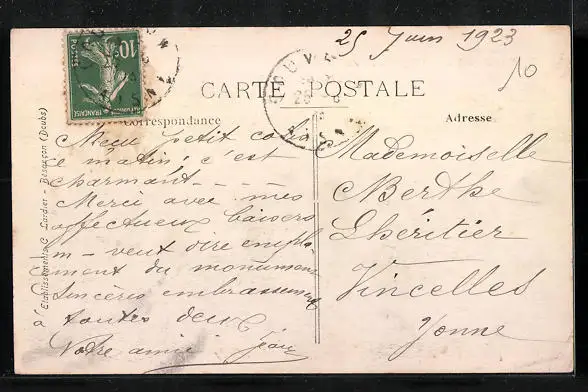 25 Juin 1923
10
10c
POSTES
RÉPUBLIQUE FRANÇAISE
CARTE POSTALE
Correspondance
Adresse
Etablissements C. Lardier - Besançon (Doubs)
Mon petit colis
ce matin, c'est
charmant - - - -
Merci avec mes
affectueux baisers
M - veut dire emplacement
du monument
Sincères embrassements
toutes deux
Votre amie Jean
Mademoiselle
Berthe
Lhéritier
Vincelles
Yonne